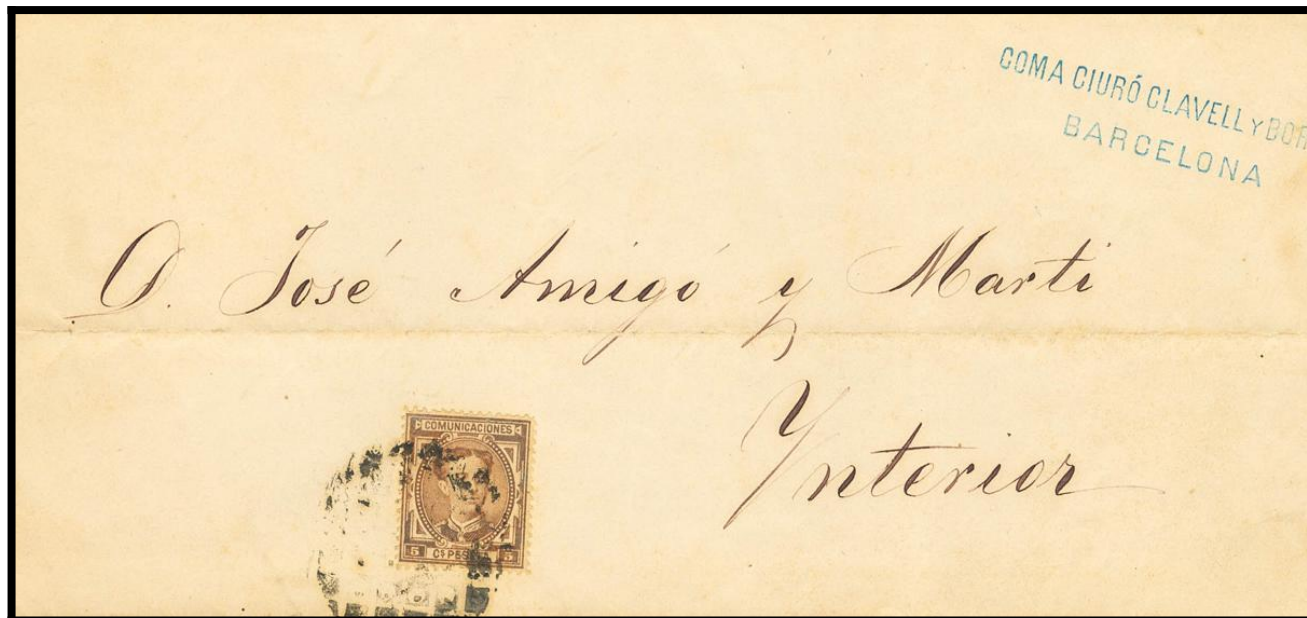 COMA CIURÓ CLAVELL Y
BARCELONA
D. José Amigó y Marti
Ynterior
COMUNICACIONES
5 Cs PES 5